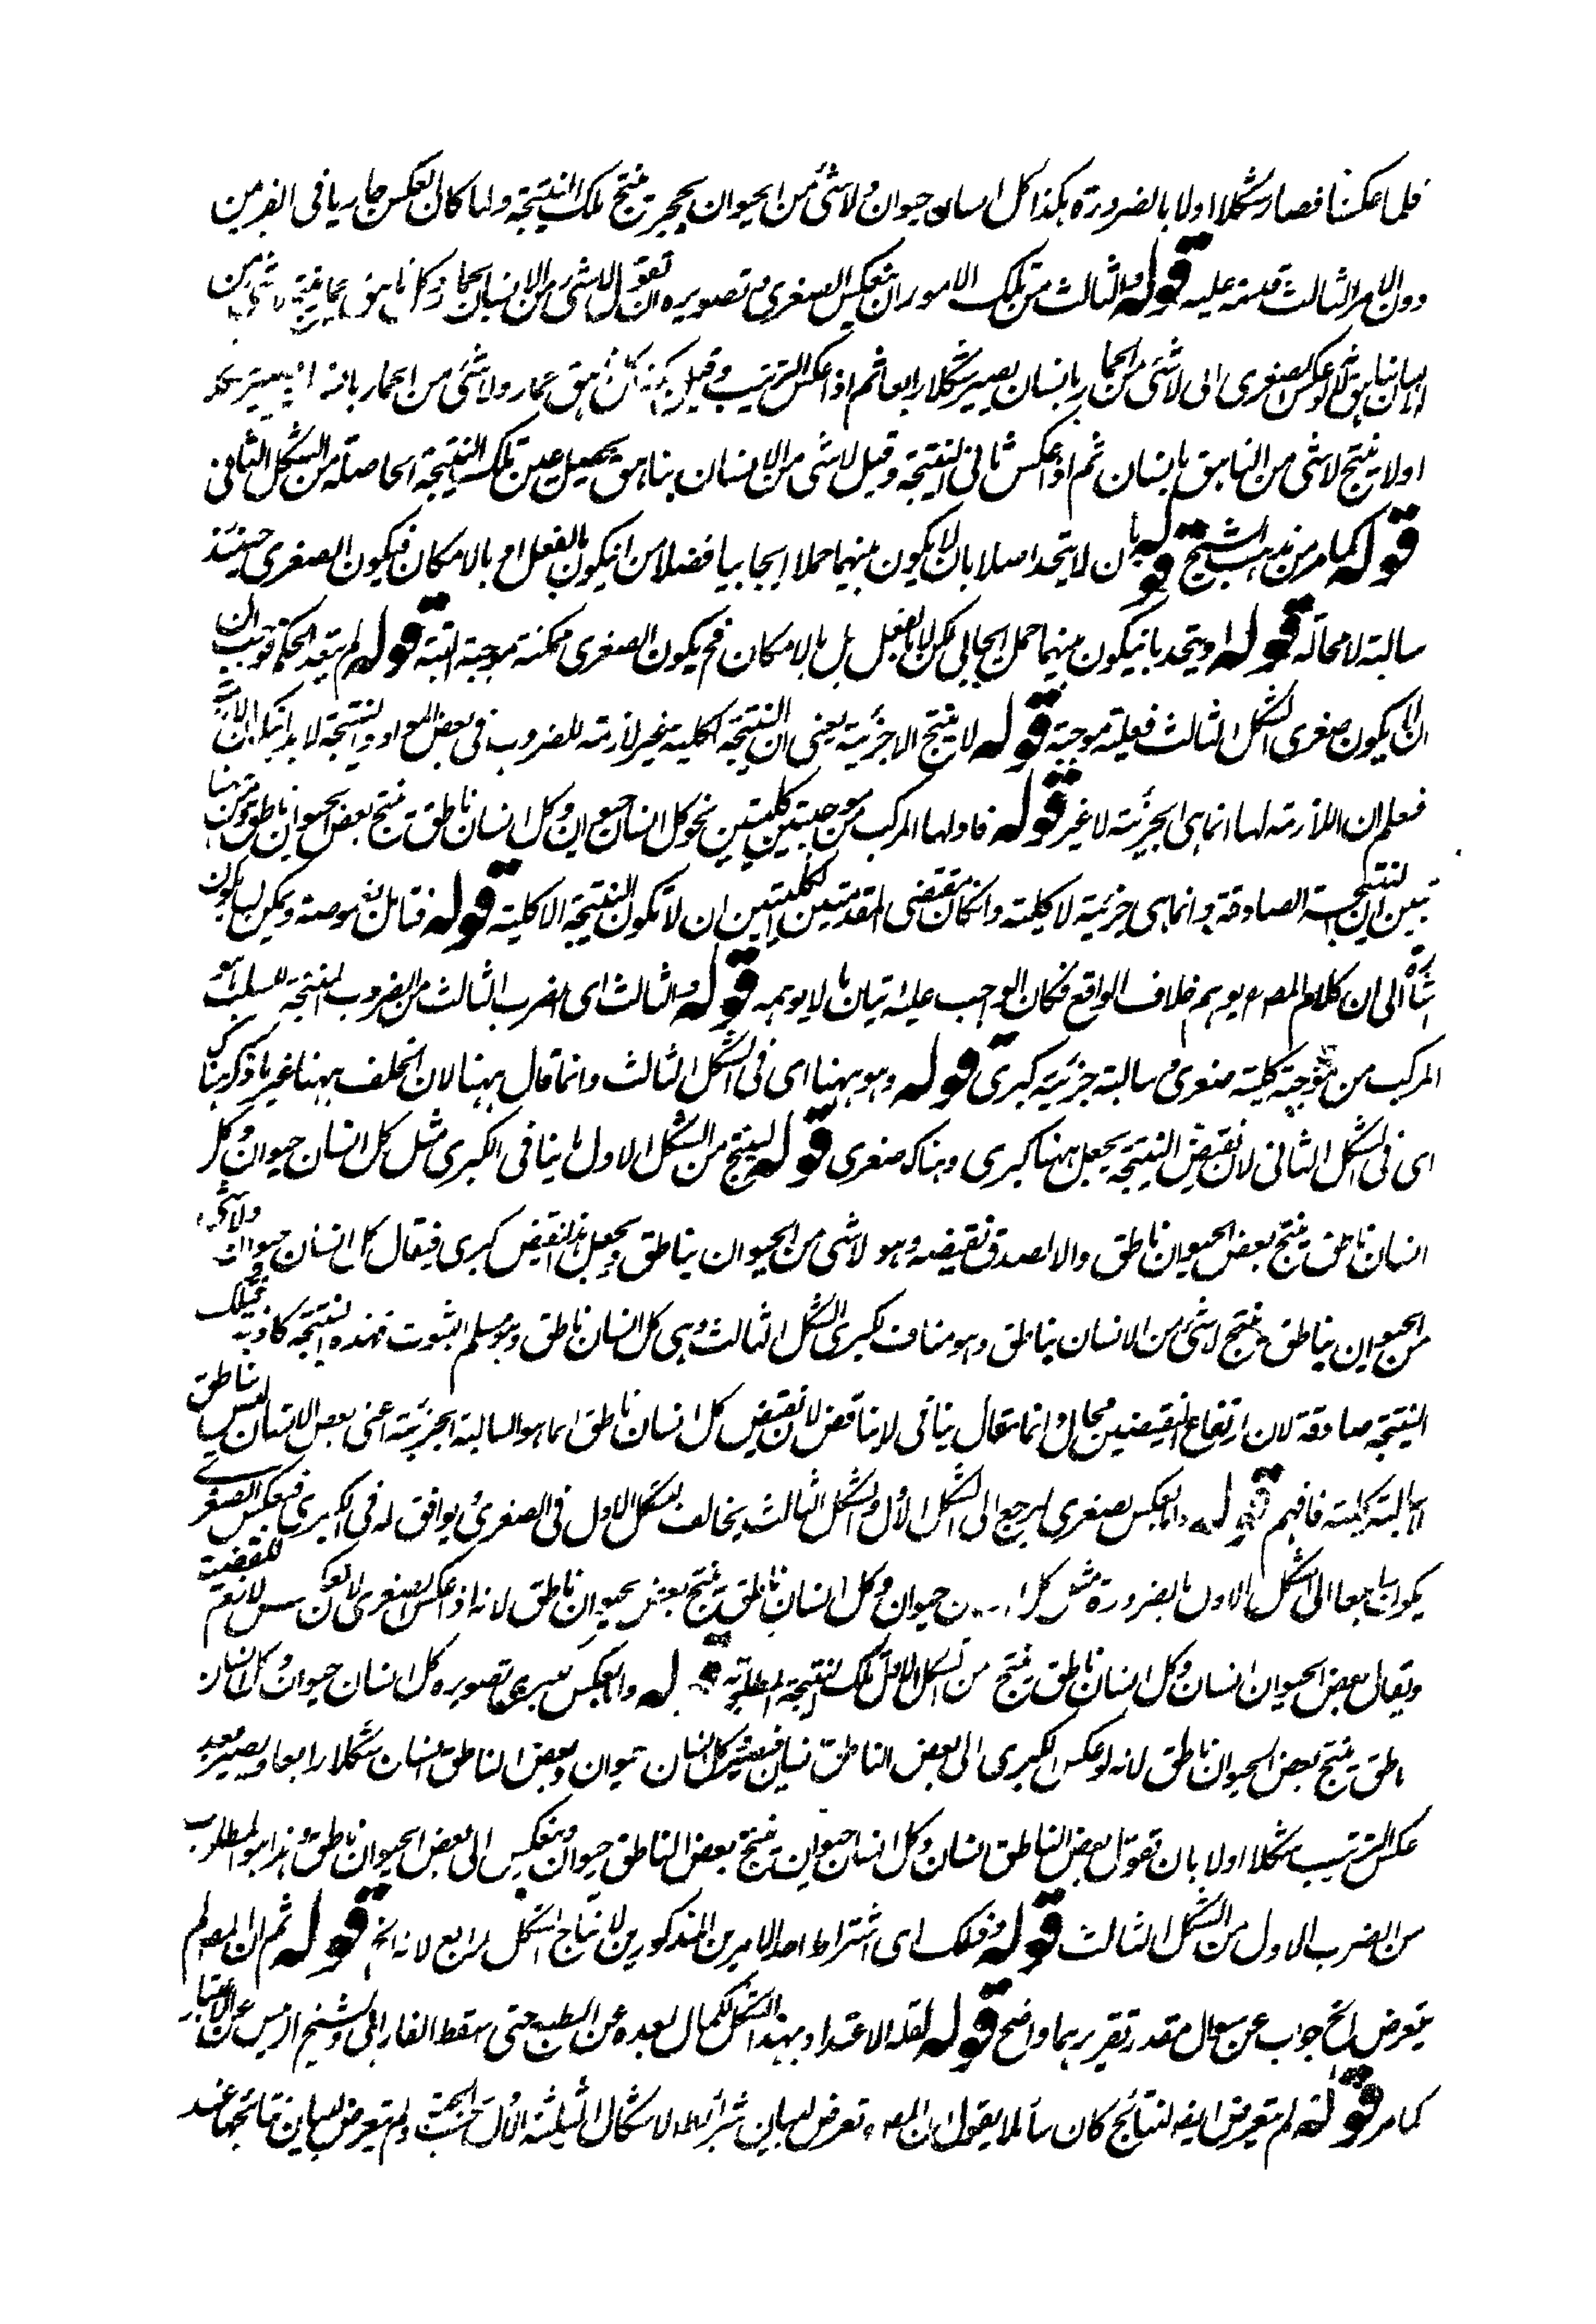 فلما عكسنا فصار شكلا اولا بالضرورة هكذا كل انسان حيوان ولا شئ من الحيوان بحجر ينتج تلك النتيجة ولما كان العكس جاريا في الضربين
دون الامر الثالث قدمته عليه قوله والثالث من تلك الامور ان ينعكس الصغرى تصويره ان تقول لا شئ من الانسان بحمار وكل ناهق حمار ينتج لا شئ من
الانسان بناهق لو عكس صغرى الى لا شئ من الحمار بانسان يصير شكلا رابعا ثم اذا عكس الترتيب وقيل كل ناهق حمار ولا شئ من الحمار بانسان يصير شكلا
اولا ينتج لا شئ من الناهق بانسان ثم اذا عكس ثانى النتيجة وقيل لا شئ من الانسان بناهق يحصل عين تلك النتيجة الحاصلة من الشكل الثانى
قوله كما مر من مذهب الشيخ قوله بان لا يتحدا اصلا بان لا يكون بينهما حملا ايجابيا فضلا من ان يكون بالفعل او بالامكان فيكون الصغرى حينئذ
سالبة لا محالة قوله او يتحد بان يكون بينهما حمل ايجابى لكن لا بالفعل بل بالامكان فح يكون الصغرى ممكنة موجبة البتة قوله لم يتعد الحكم فوجب ان
ان يكون صغرى الشكل الثالث فعلية موجبة قوله لا ينتج الا جزئية يعنى ان النتيجة الكلية غير لازمة للضروب في بعض المواد والنتيجة لا بد
فعلم ان اللازمة لها انما هى الجزئية لا غير قوله فاولها المركب من موجبتين كليتين نحو كل انسان حيوان وكل انسان ناطق ينتج بعض الحيوان ناطق ومن ههنا
تبين ان النتيجة الصادقة انما هى جزئية لا كلية وان كان مقتضى المقدمتين الكليتين ان لا تكون النتيجة الا كلية قوله فتأمل
الى ان كلام المصم يوهم خلاف الواقع فكان الواجب عليه اتيان ما لا يوهمه قوله والثالث اى الضرب الثالث من الضروب المنتجة للسلب
المركب من موجبة كلية صغرى وسالبة جزئية كبرى قوله وهو ههنا اى في الشكل الثالث وانما قال ههنا لان الخلف ههنا غير ما ذكر هناك
اى في الشكل الثانى لان نقيض النتيجة يجعل ههنا كبرى وهناك صغرى قوله لينتج من الشكل الاول ما ينافى الكبرى مثل كل انسان حيوان وكل
انسان ناطق ينتج بعض الحيوان ناطق والا لصدق نقيضه وهو لا شئ من الحيوان بناطق ويجعل هذا النقيض كبرى فيقال كل انسان حيوان ولا شئ
من الحيوان بناطق ينتج لا شئ من الانسان بناطق وهو مناف لكبرى الشكل الثالث وهى كل انسان ناطق وهو مسلم الثبوت فهذه النتيجة كاذبة فتلك
النتيجة صادقة لان ارتفاع النقيضين محال وانما يقال ينافى لا يناقض لان نقيض كل انسان ناطق انما هو السالبة الجزئية اعنى بعض الانسان ليس بناطق
لا السالبة كلية فافهم قوله واما بعكس صغرى ليرجع الى الشكل الاول والشكل الثالث يخالف الشكل الاول في الصغرى ويوافق له في الكبرى فبعكس الصغرى
يكون راجعا الى الشكل الاول بالضرورة مثل كل انسان حيوان وكل انسان ناطق ينتج بعض الحيوان ناطق لانه اذا عكس الصغرى
ويقال بعض الحيوان انسان وكل انسان ناطق ينتج من الشكل الاول تلك النتيجة المطلوبة قوله واما بعكس كبرى تصويره كل انسان حيوان وكل انسان
ناطق ينتج بعض الحيوان ناطق لانه لو عكس الكبرى الى بعض الناطق انسان فيصير كل انسان حيوان وبعض الناطق انسان شكلا رابعا ويصير بعد
عكس الترتيب شكلا اولا بان تقول بعض الناطق انسان وكل انسان حيوان ينتج بعض الناطق حيوان وينعكس الى بعض الحيوان ناطق وهذا هو المطلوب
من الضرب الاول من الشكل الثالث قوله وذلك اى اشتراط احد الامرين المذكورين لانتاج الشكل الرابع لانه الخ قوله ثم ان المصم لم
يتعرض الخ جواب عن سوال مقدر تقريرهما واضح قوله لقلة الاعتداد بهذا الشكل لكمال بعده عن الطبع حتى سقط الفارابى والشيخ الرئيس عن الاعتبار
كما مر قوله لم يتعرض ايضا لنتائج كان سائلا يقول ان المصم تعرض لبيان شرائط الاشكال الثلثة الاول بحسب الجهة ولم يتعرض لبيان نتائجها عند